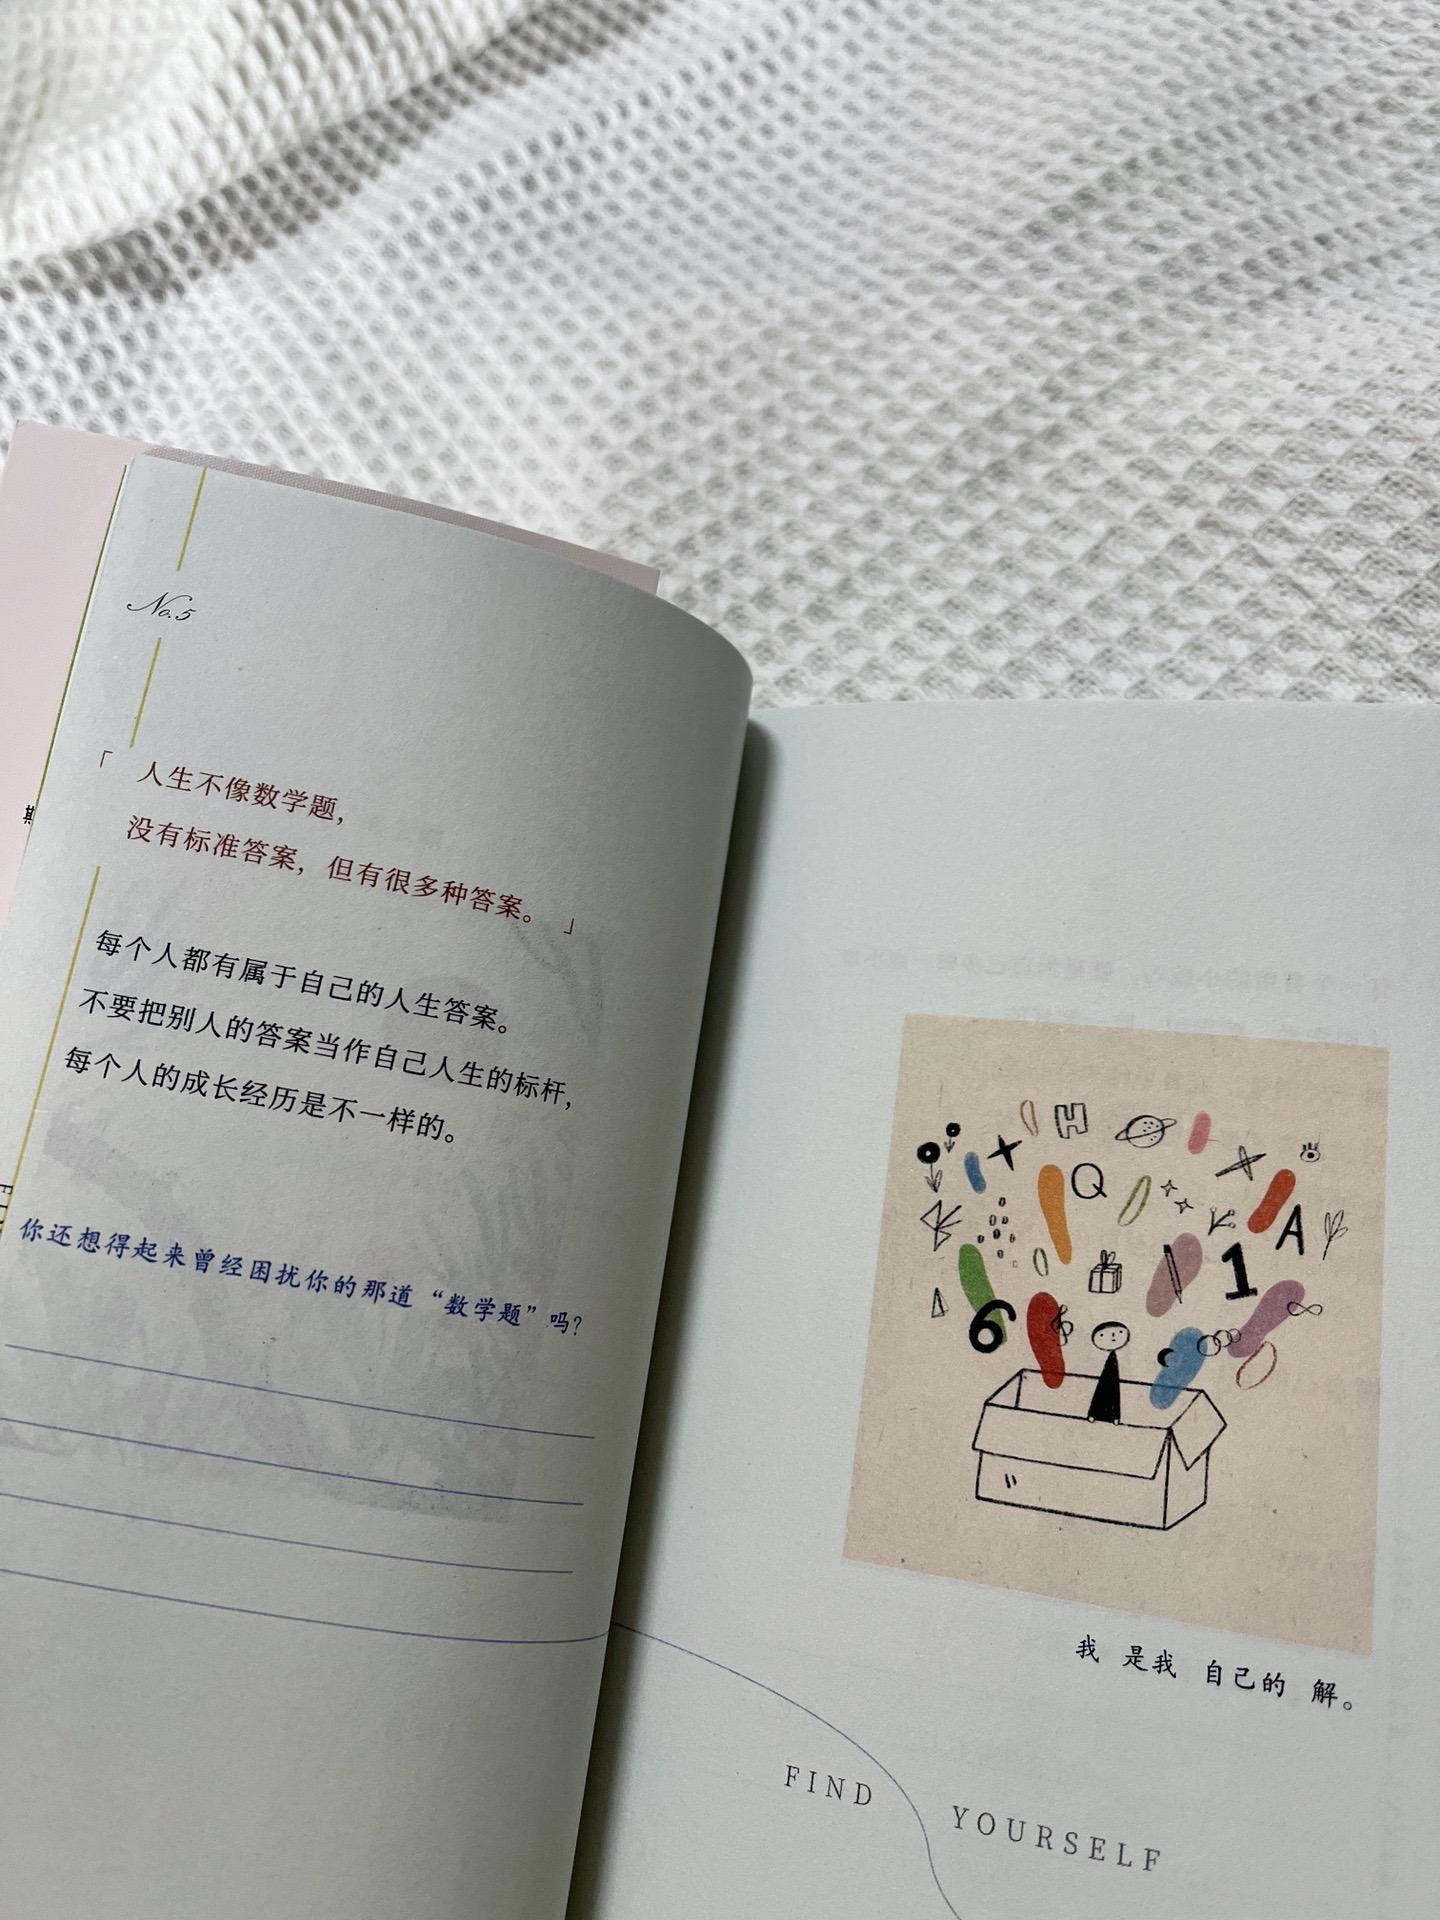 No.5
「 人生不像数学题，
没有标准答案，但有很多种答案。」
每个人都有属于自己的人生答案。
不要把别人的答案当作自己人生的标杆，
每个人的成长经历是不一样的。
你还想得起来曾经困扰你的那道“数学题”吗？
H
Q
A
1
6
我 是我 自己的 解。
FIND YOURSELF